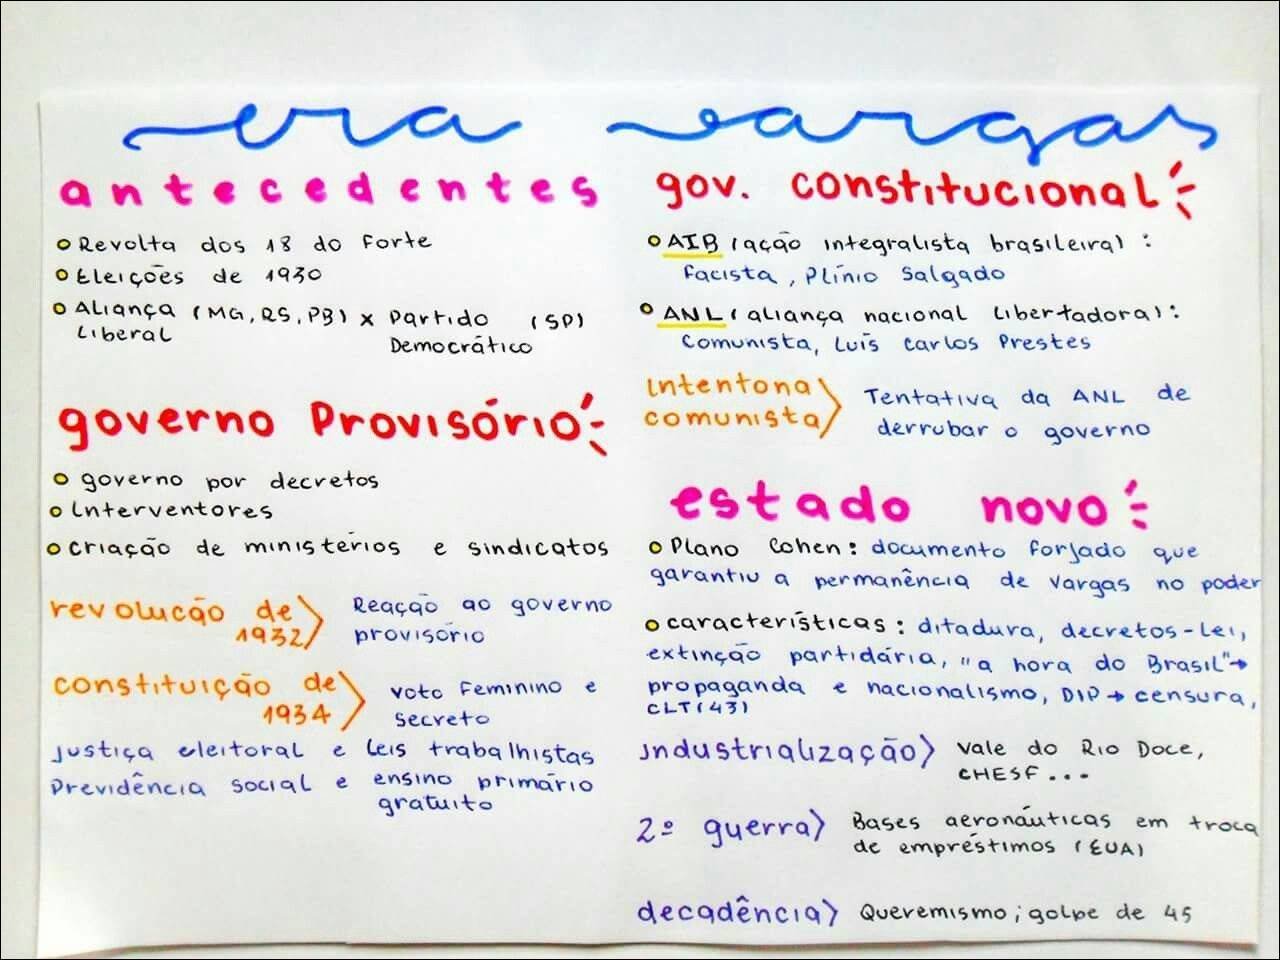 era vargas
antecedentes
Revolta dos 18 do Forte
Eleições de 1930
Aliança (MG, RS, PB) x Partido (SP)
Liberal Democrático
governo Provisório
governo por decretos
Interventores
criação de ministérios e sindicatos
revolucão de Reação ao governo
1932 provisório
constituição de voto Feminino e
1934 secreto
justiça eleitoral e Leis trabalhistas
Previdência social e ensino primário
gratuito
gov. constitucional
AIB (ação integralista brasileira) :
Facista, Plínio Salgado
ANL (aliança nacional Libertadora) :
Comunista, Luís Carlos Prestes
Intentona Tentativa da ANL de
comunista derrubar o governo
estado novo
Plano Cohen : documento forjado que
garantiu a permanência de Vargas no poder
características : ditadura, decretos-lei,
extinção partidária, "a hora do Brasil"→
propaganda e nacionalismo, DIP → censura,
CLT (43)
industrialização Vale do Rio Doce,
CHESF...
2º guerra Bases aeronáuticas em troca
de empréstimos (EUA)
decadência Queremismo; golpe de 45